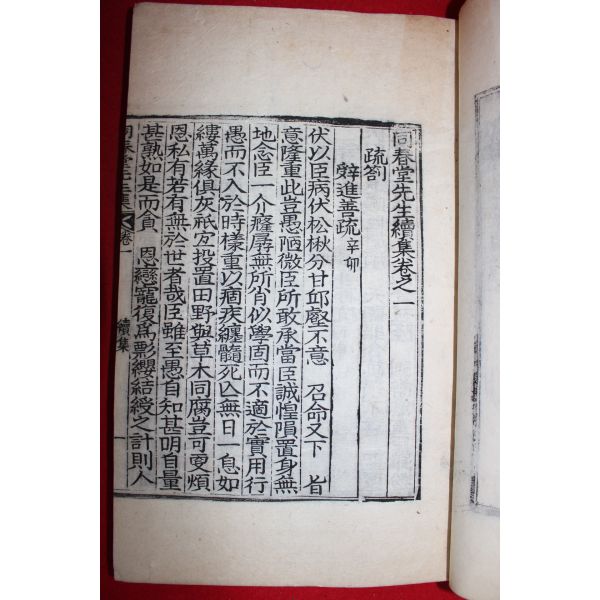 同春堂先生續集卷之一
疏劄
辭進善疏 辛卯
伏以臣病伏松楸分甘邱壑不意 召命又下 旨
意隆重此豈愚陋微臣所敢承當臣誠惶隕置身無
地念臣一介孱孱無所肖似學固而不適於實用行
愚而不入於時樣重以痼疾纏髓死亡無日一息如
縷萬緣俱灰祇宜投置田野與草木同腐豈可更煩
恩私有若有無於世者哉臣雖至愚自知甚明自量
甚熟如是而貪 恩戀寵復爲彯纓結綬之計則人
同春堂先生集 卷一 續集 一